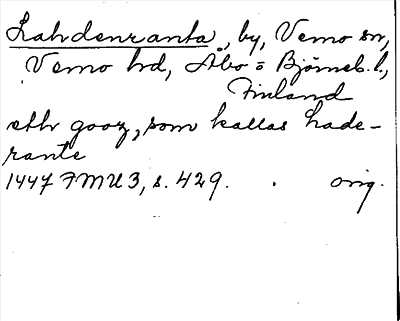 Lahdenranta, by, Vemo sn,
Vemo hd, Åbo o Björneb. l,
Finland
eth gooz, som kallas hade-
rante
1447 FMU 3, s. 429. orig.